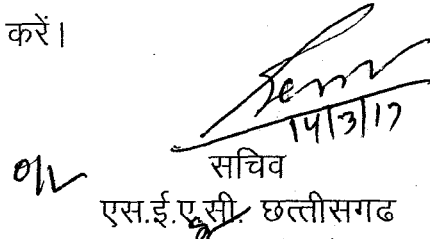 करें।
14/3/17
सचिव
एस.ई.ए.सी. छत्तीसगढ